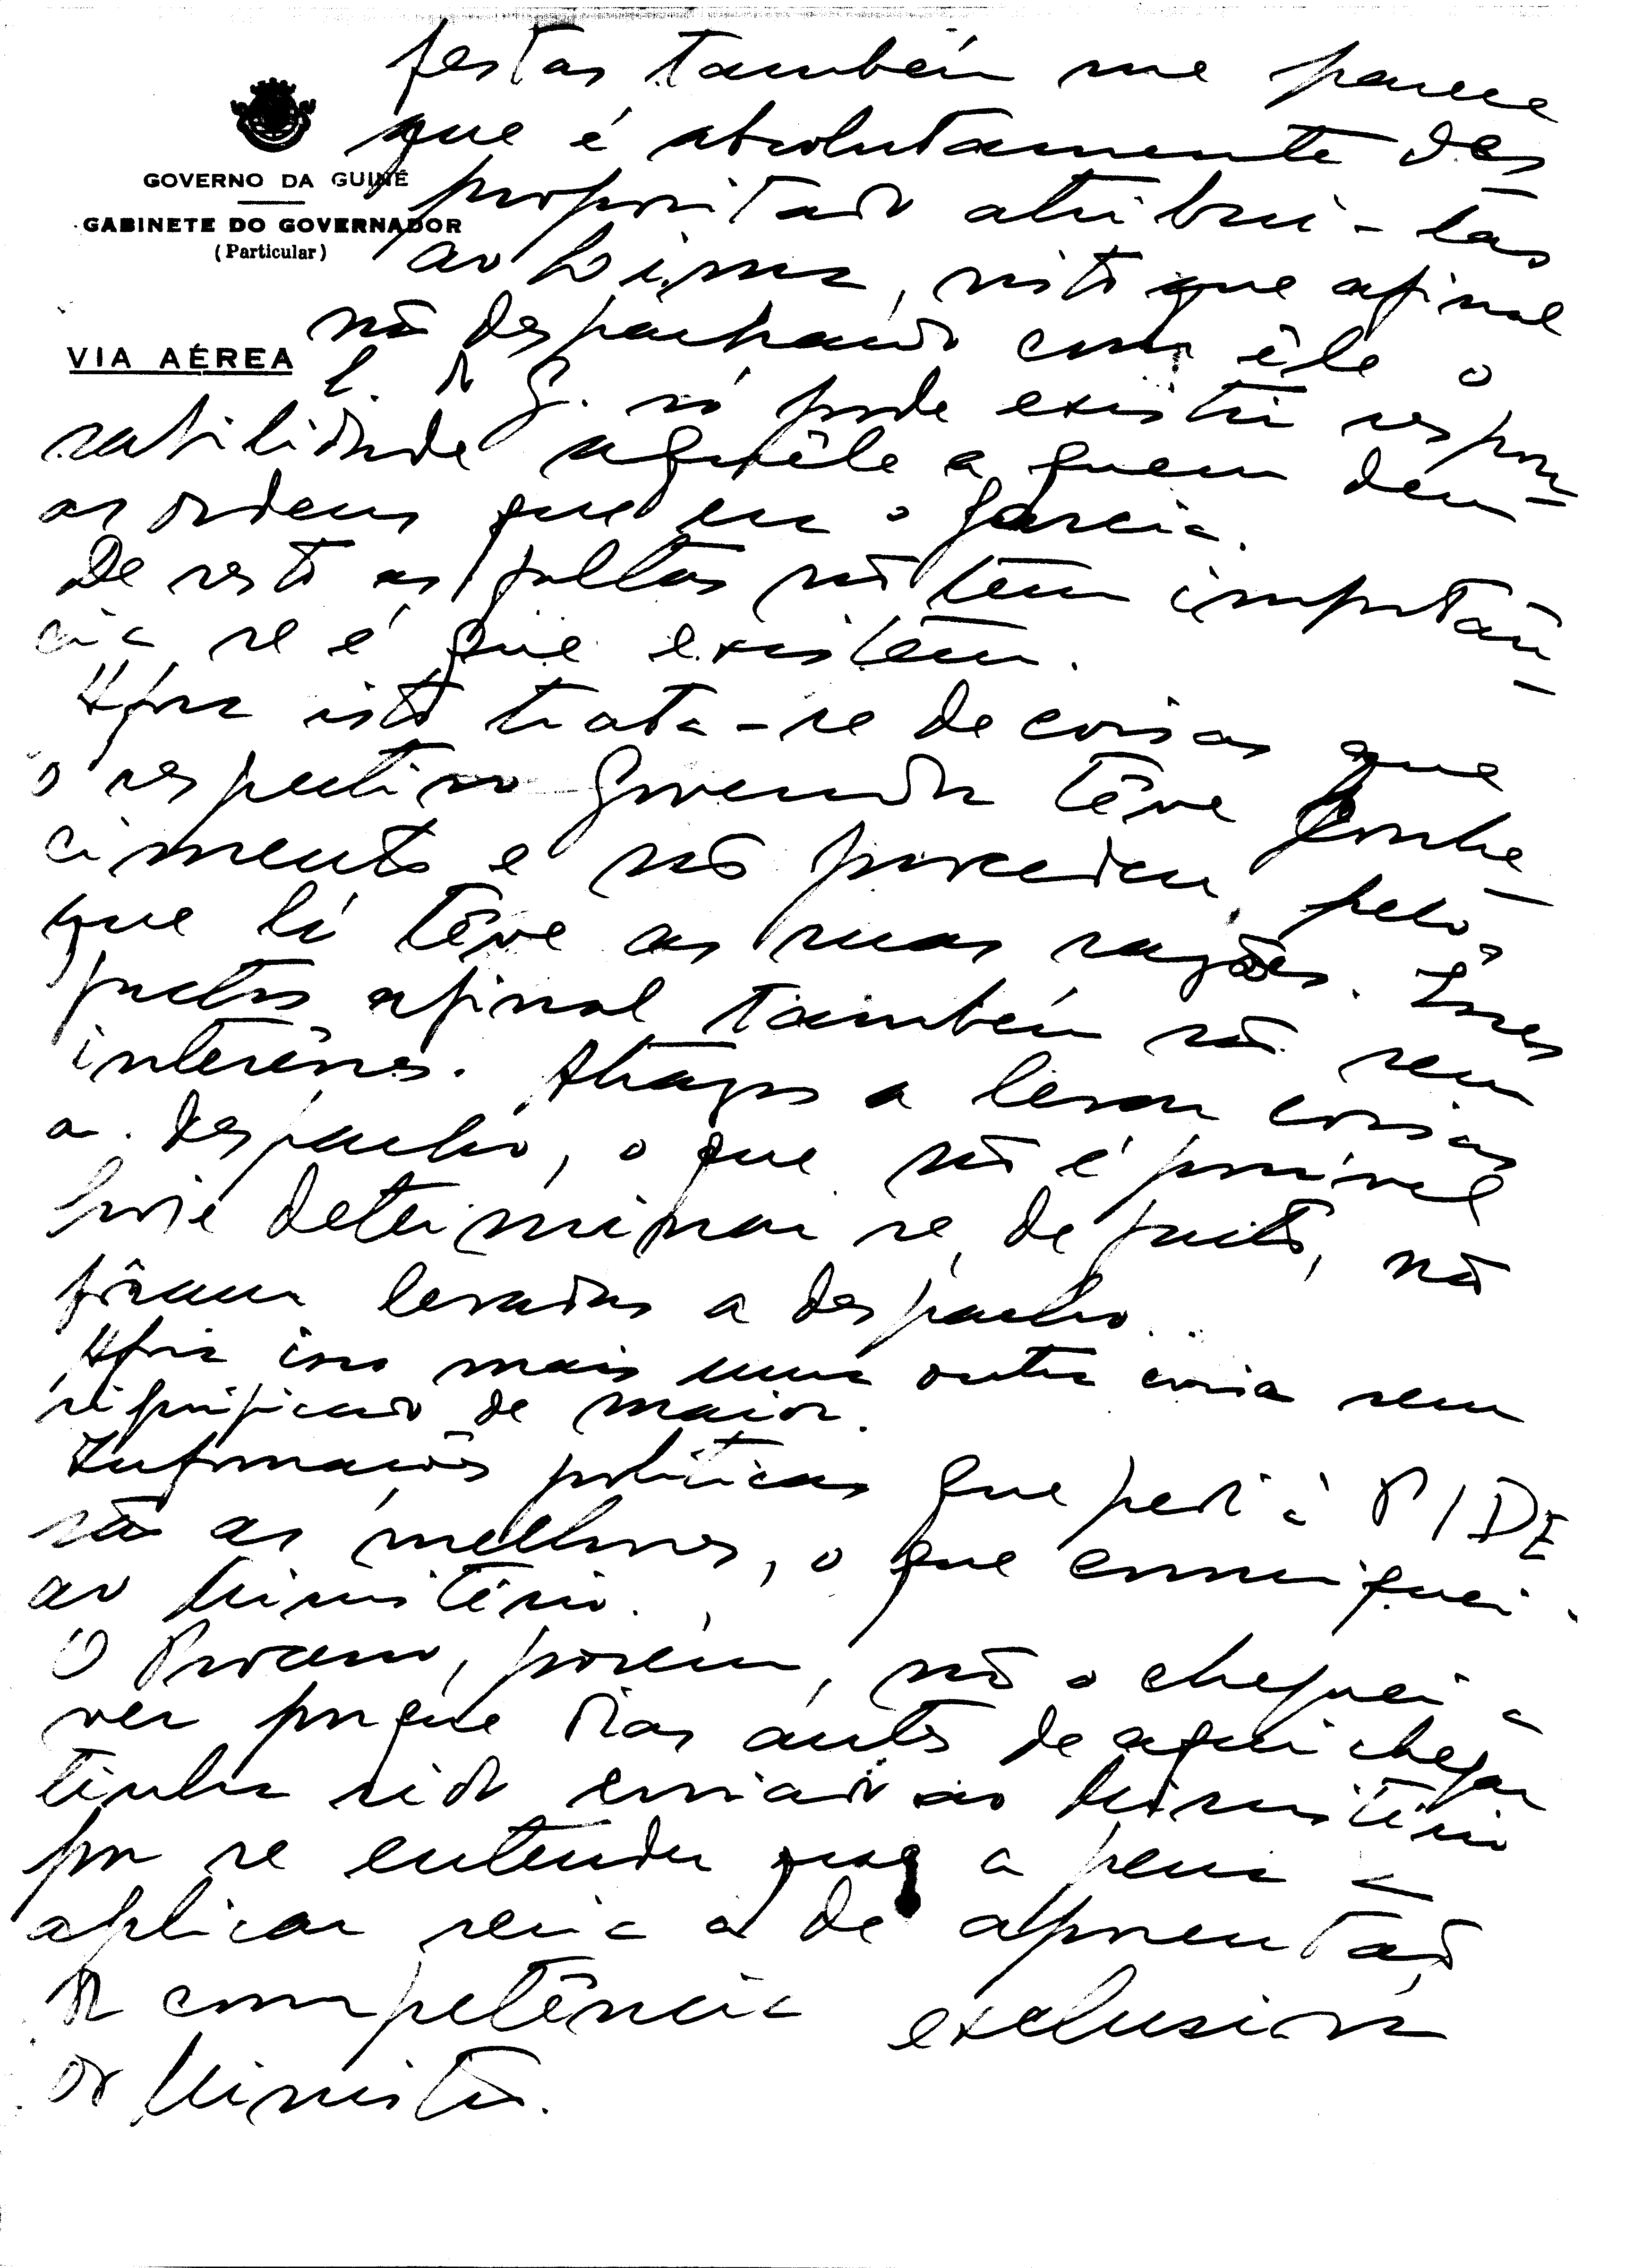 GOVERNO DA GUINÉ
GABINETE DO GOVERNADOR
(Particular)
VIA AÉREA
festas também me parece
que é absolutamente des
propositado atribui-las
ao Lima, visto que afinal
não despachando com êle o
E. do G. só pode existir respon
sabilidade aquêle a quem deu
as ordens que era o Garcia.
De resto as faltas não têm importân
cia se é que existem.
Afora isto trata-se de coisas que
o respectivo Governador têve conhe
cimento e não procedeu, pelo
que lá têve as suas razões. Esses
factos afinal também são sem
interêsse. Atrazos a levar coisas
a despacho, o que não é possivel
hoje determinar se, de facto, não
fôram levadas a despacho.
Afora isso mais uma outra coisa sem
significado de maior.
Informações politicas que pedi à PIDE
são as melhores, o que comuniquei
ao Ministério.
O Processo, porém, não o cheguei a
ver porque dias antes de aqui chegar
tinha sido enviado ao Ministério
por se entender que a pena a
aplicar seria a de aposentação
da competência exclusiva
do Ministro.